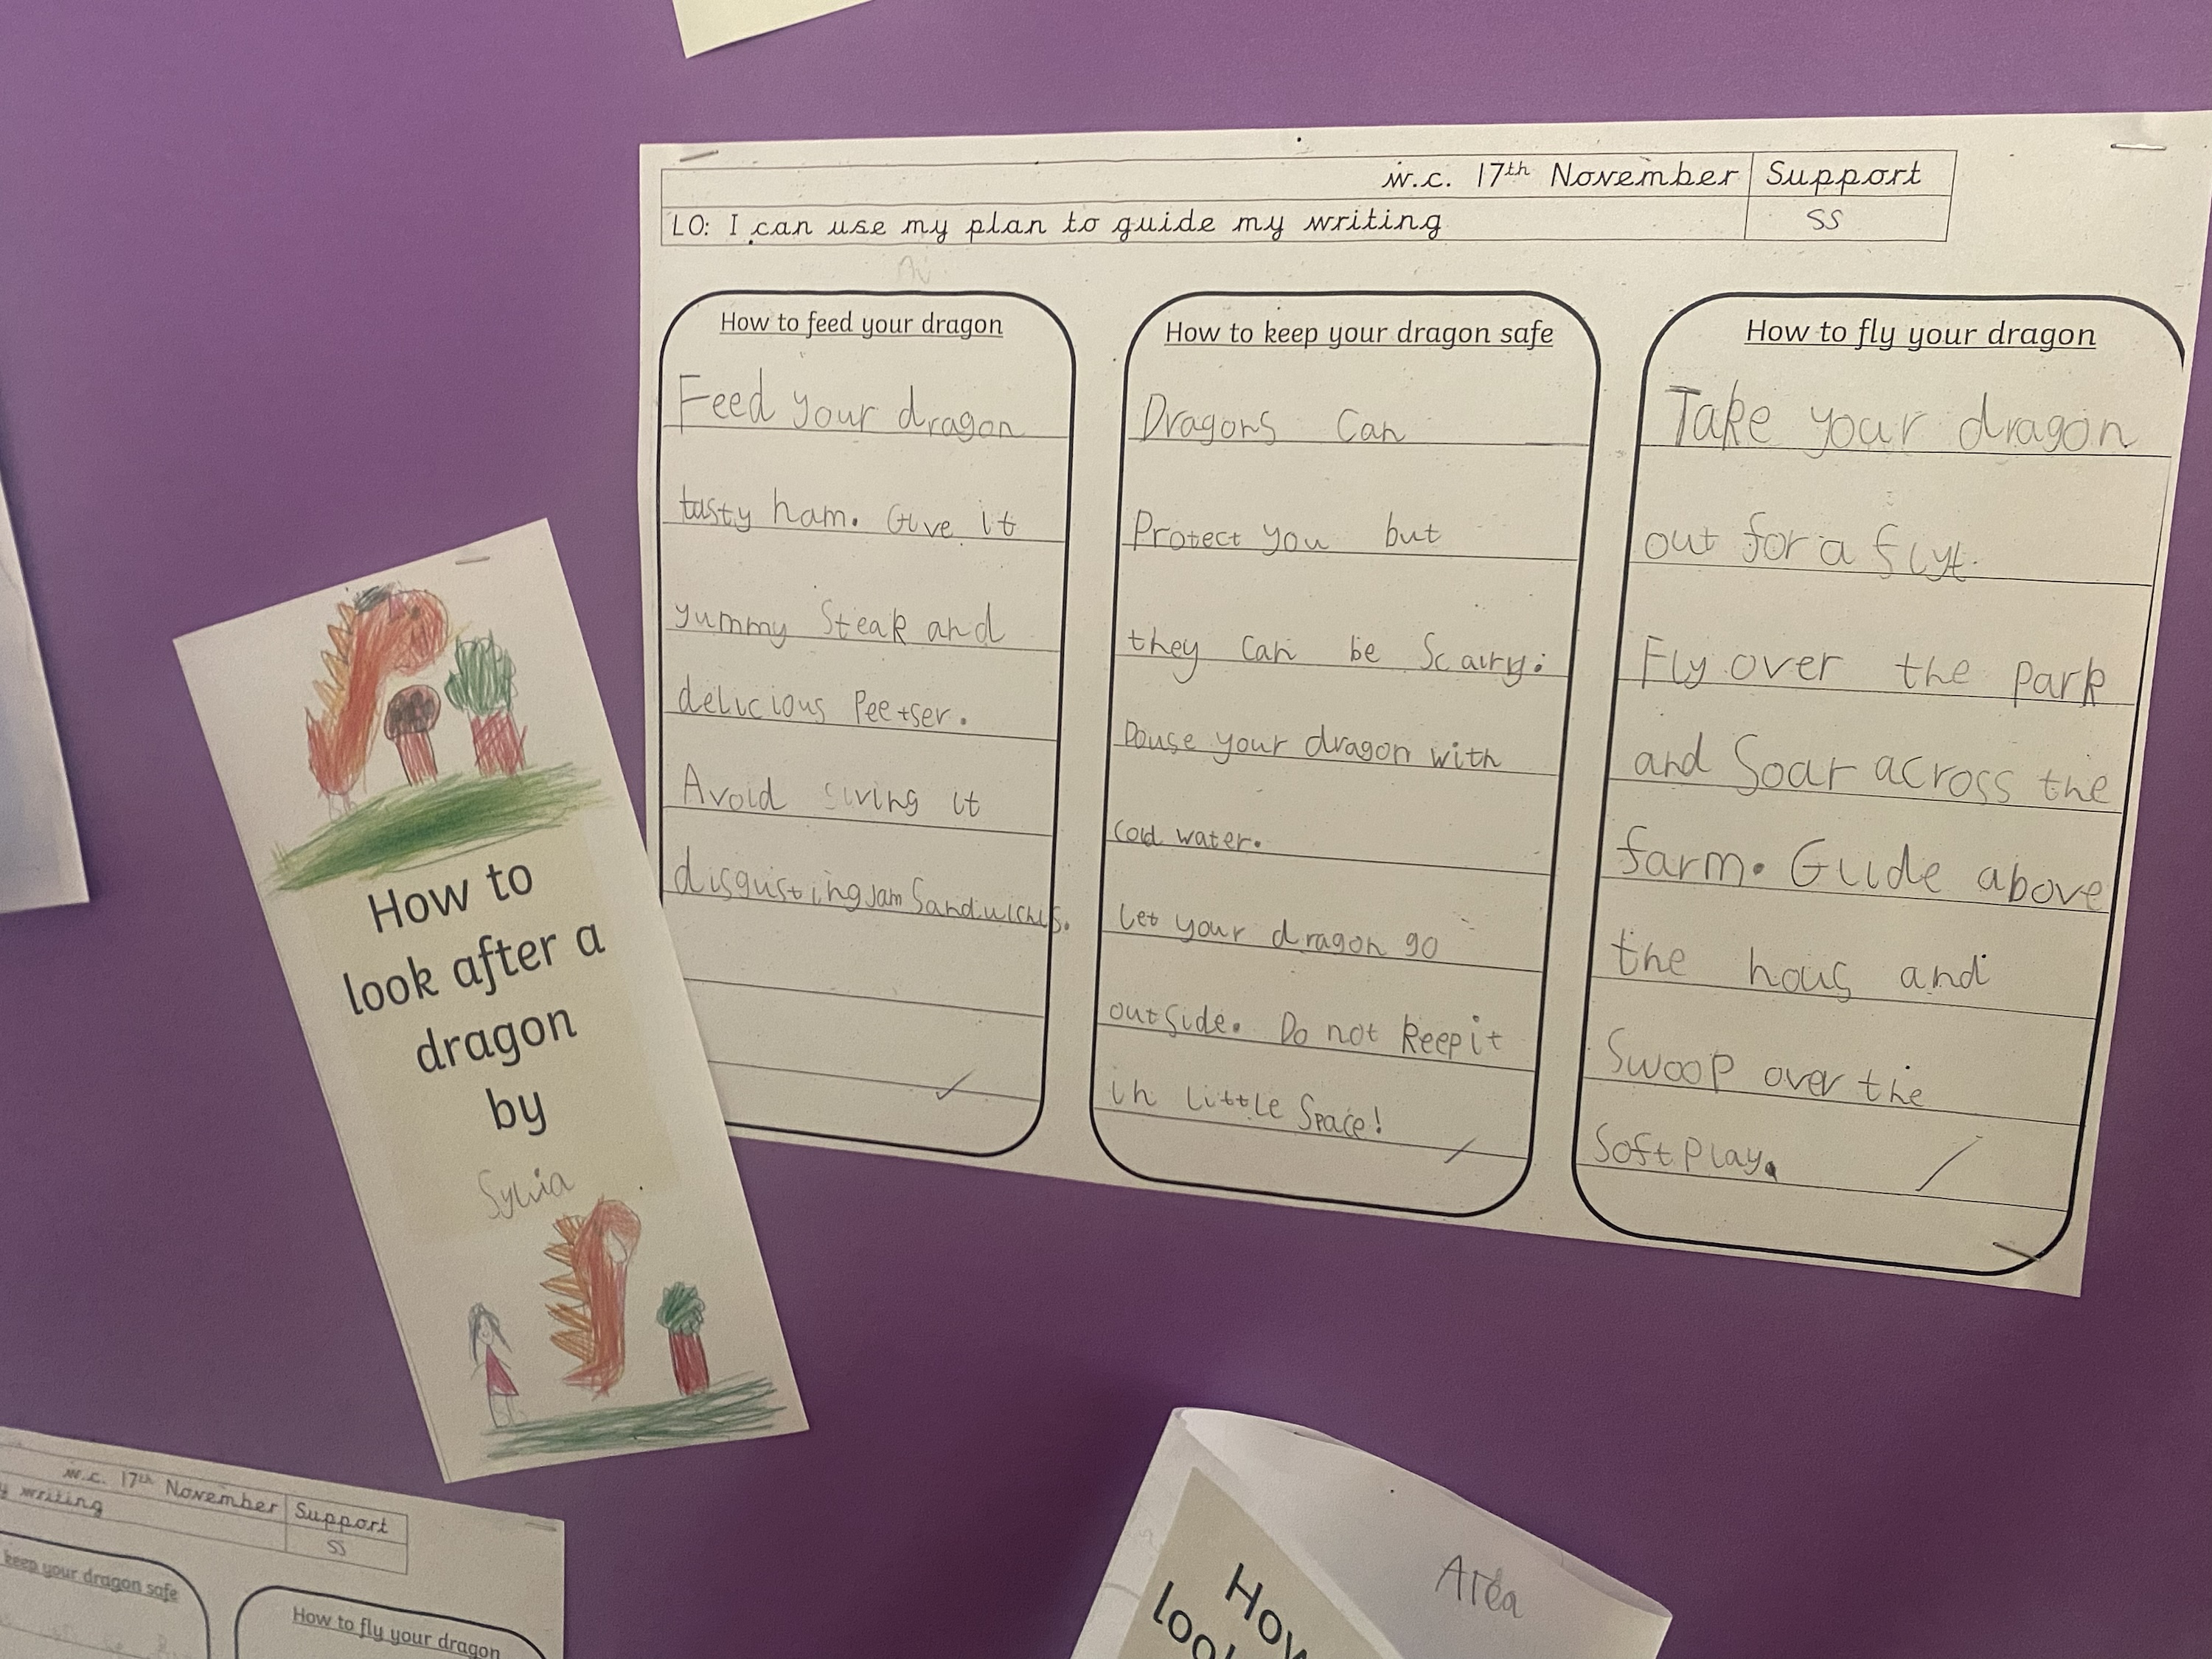 w.c. 17th November
Support
LO: I can use my plan to guide my writing
SS
How to feed your dragon
Feed your dragon
tasty ham. Give it
yummy Steak and
delicious Peetser.
Avoid giving it
disgusting jam Sandwichis.
How to keep your dragon safe
Dragons Can
Protect you but
they Can be Scairy.
Douse your dragon with
cold water.
Let your dragon go
outSide. Do not keep it
in LittLe Space!
How to fly your dragon
Take your dragon
out for a flyt.
Fly over the Park
and Soar across the
farm. Guide above
the hous and
Swoop over the
Soft Play.
How to
look after a
dragon
by
Sylvia
w.c. 17th November
Support
writing
SS
keep your dragon safe
How to fly your dragon
Area
How